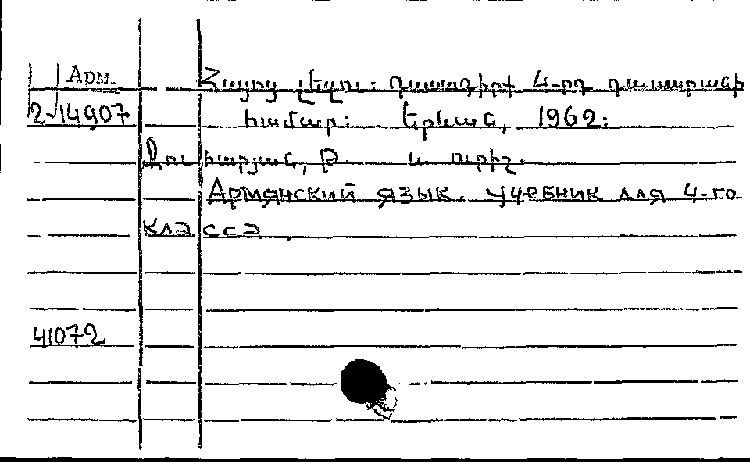 Арм.
Հայոց լեզու: դասագիրք 4-րդ դասարար
2-14907
համար: Երևան, 1962:
Զաքարյան, Ք. և ուրիշ.
Армянский язык. Учебник для 4-го
класса.
41072